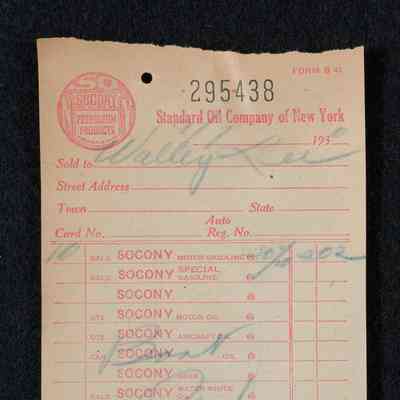 FORM B 41
SOCONY
PETROLEUM
PRODUCTS
295438
Standard Oil Company of New York
193
Sold to Walley Lee
Street Address
Town State
Card No. Auto Reg. No.
10 GALS SOCONY MOTOR GASOLINE @ 202
GALS SOCONY SPECIAL GASOLINE @
SOCONY @
QTS SOCONY MOTOR OIL @
QTS SOCONY AIRCRAFT OIL @
CAN OIL @
SOCONY @
GALS SOCONY WATER WHITE @